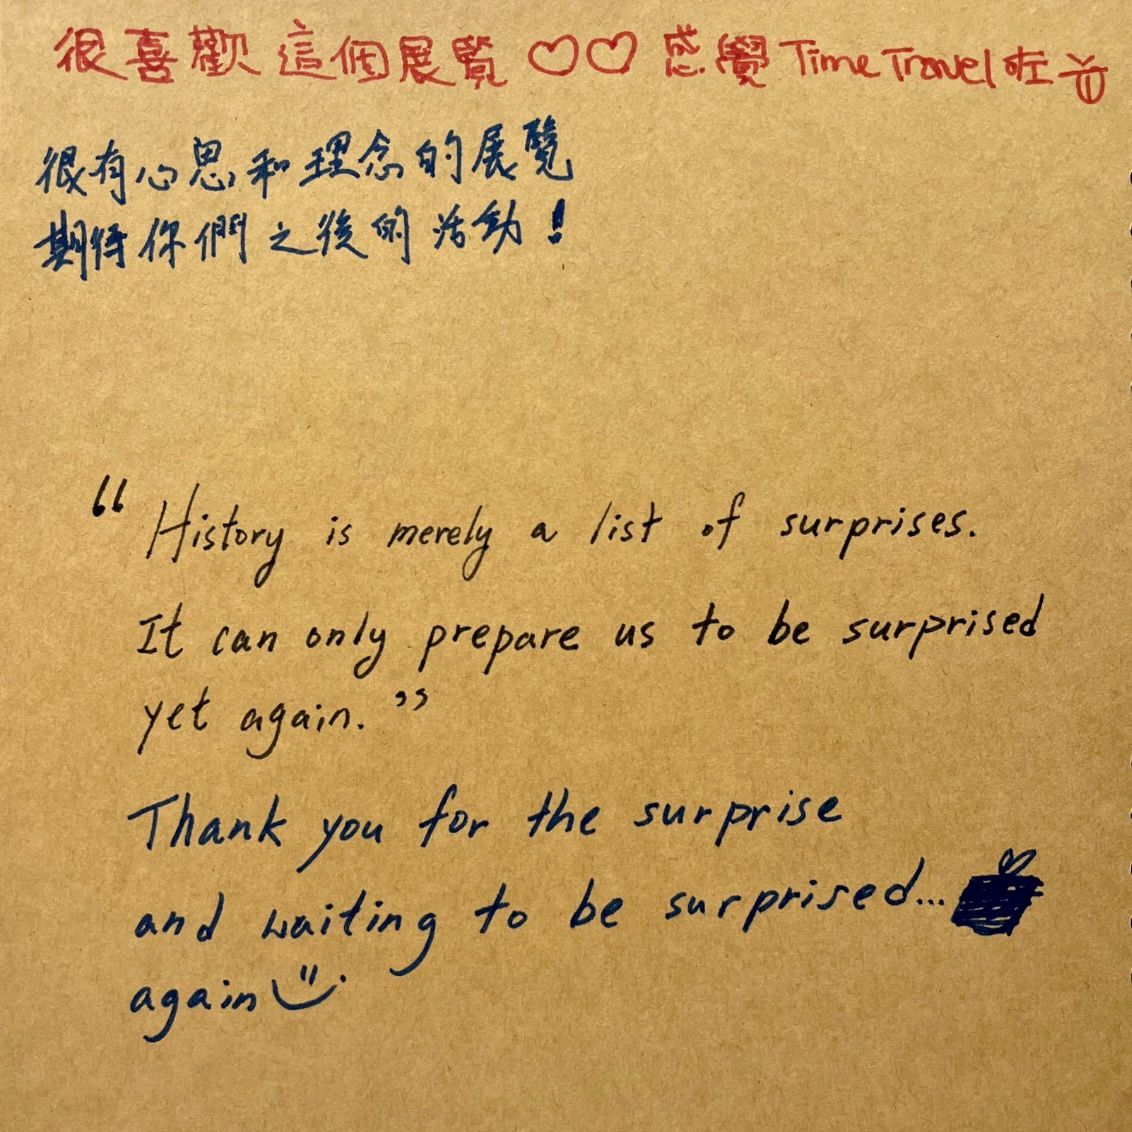 很喜歡這個展覽 ♡♡ 感覺 Time Travel 咗
很有心思和理念的展覽
期待你們之後的活動！
“History is merely a list of surprises.
It can only prepare us to be surprised
yet again.”
Thank you for the surprise
and waiting to be surprised...
again